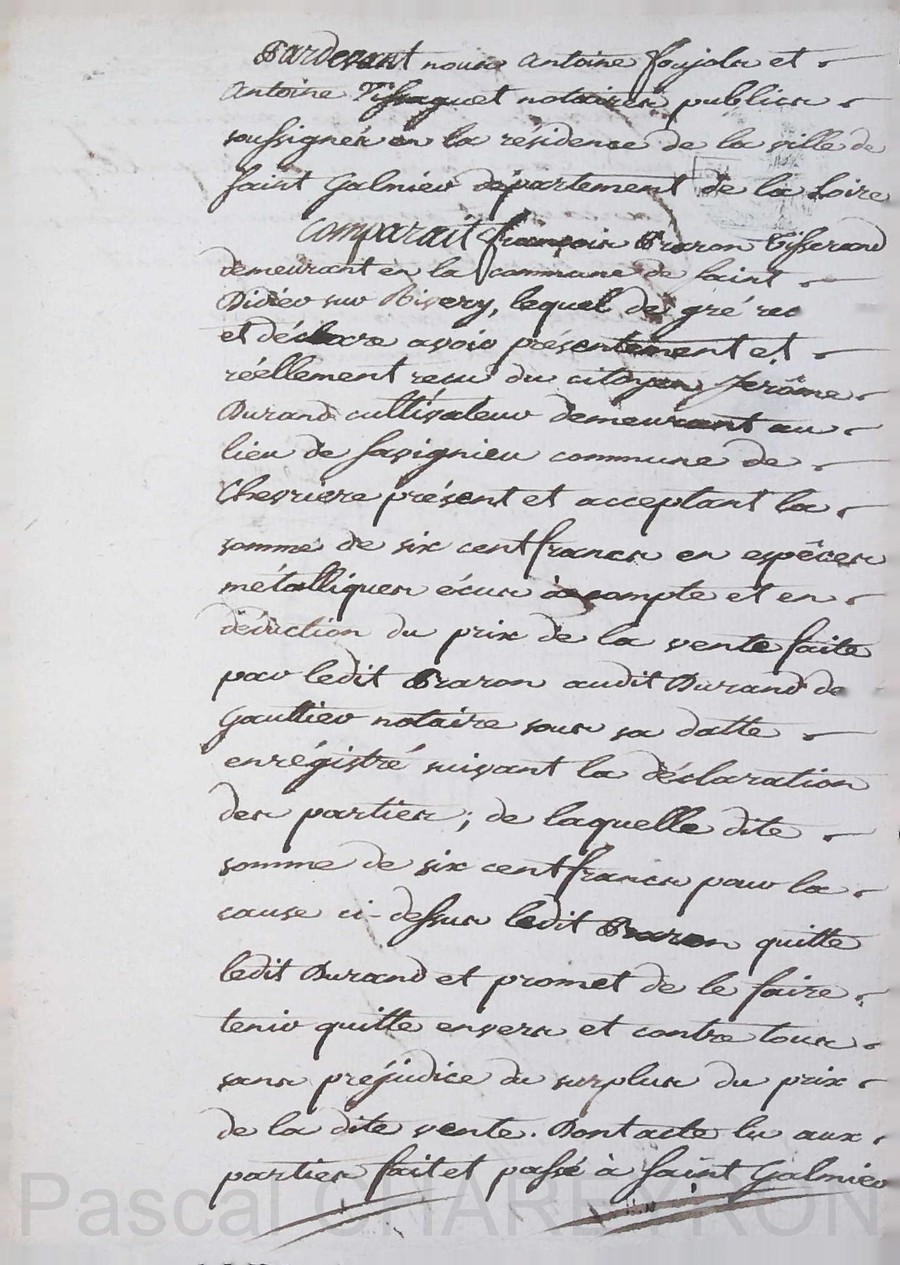 Pardevant nous Antoine Foujols et
Antoine Tissaguet notaires publics
soussignés en la résidence de la ville de
Saint Galmier département de la Loire
Comparait françois Braron Tisserand
demeurant en la commune de Saint
Didier sur Rivery, lequel de gré rec
et déclare avoir présentement et
réellement recu du citoyen Jerôme
Durand cultivateur demeurant au
lieu de Savignieu commune de
Chevriere présent et acceptant la
somme de six cent francs en espêces
métalliques écus à compte et en
déduction du prix de la vente faite
par ledit Braron audit Durand de
Gaultier notaire sous sa datte
enrégistré suivant la déclaration
des parties ; de laquelle dite
somme de six cent francs pour la
cause ci-dessus ledit Braron quitte
ledit Durand et promet de le faire
tenir quitte envers et contre tous
sans préjudice du surplus du prix
de la dite vente. Dont acte lu aux
parties fait et passé à Saint Galmier
Pascal CHAREYRON